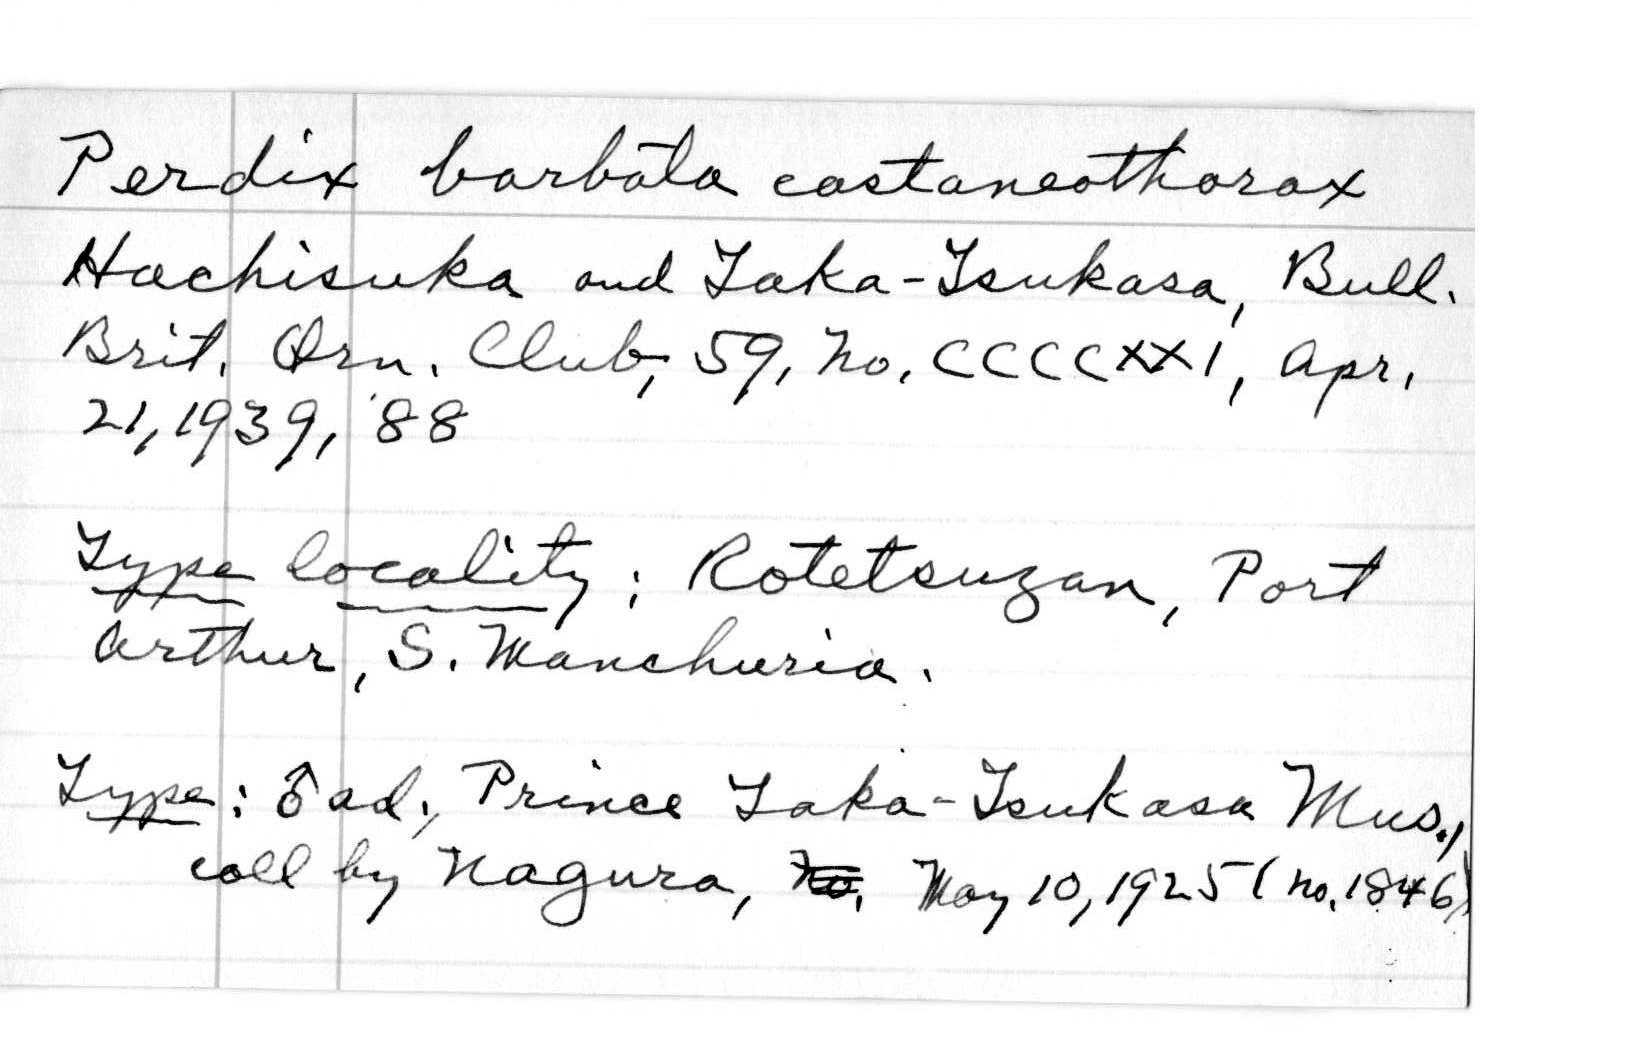 Perdix barbata castaneothorax
Hachisuka and Taka-Tsukasa, Bull.
Brit. Orn. Club, 59, no. CCCCXXI, Apr.
21, 1939, 88
Type locality: Rotetsuzan, Port
Arthur, S. Manchuria.
Type: ♂ ad., Prince Taka-Tsukasa Mus.,
coll by Nagura, No. May 10, 1925 (no. 1846)